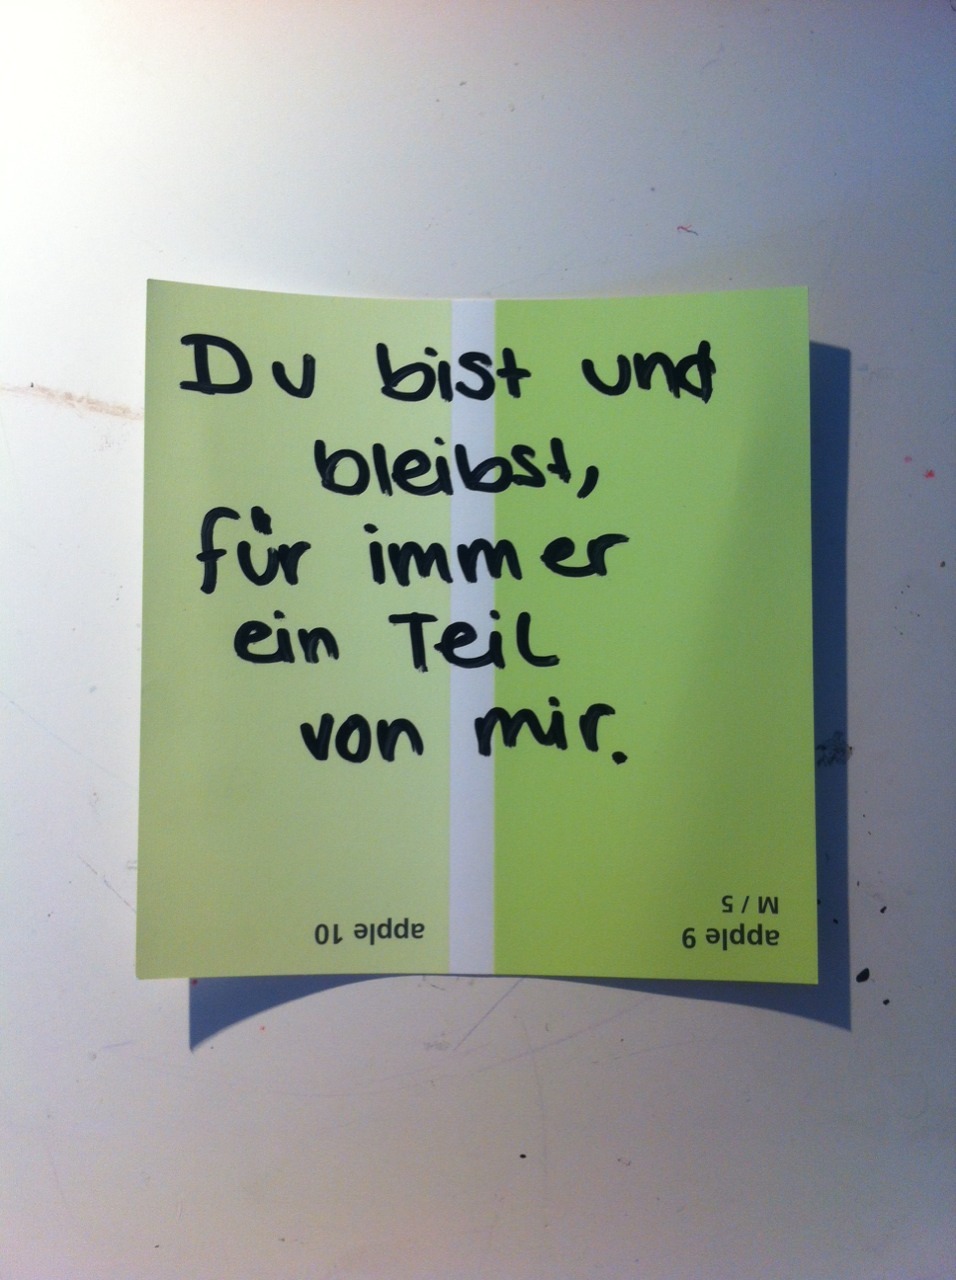 Du bist und
bleibst,
für immer
ein Teil
von mir.
apple 10
apple 9
M / 5